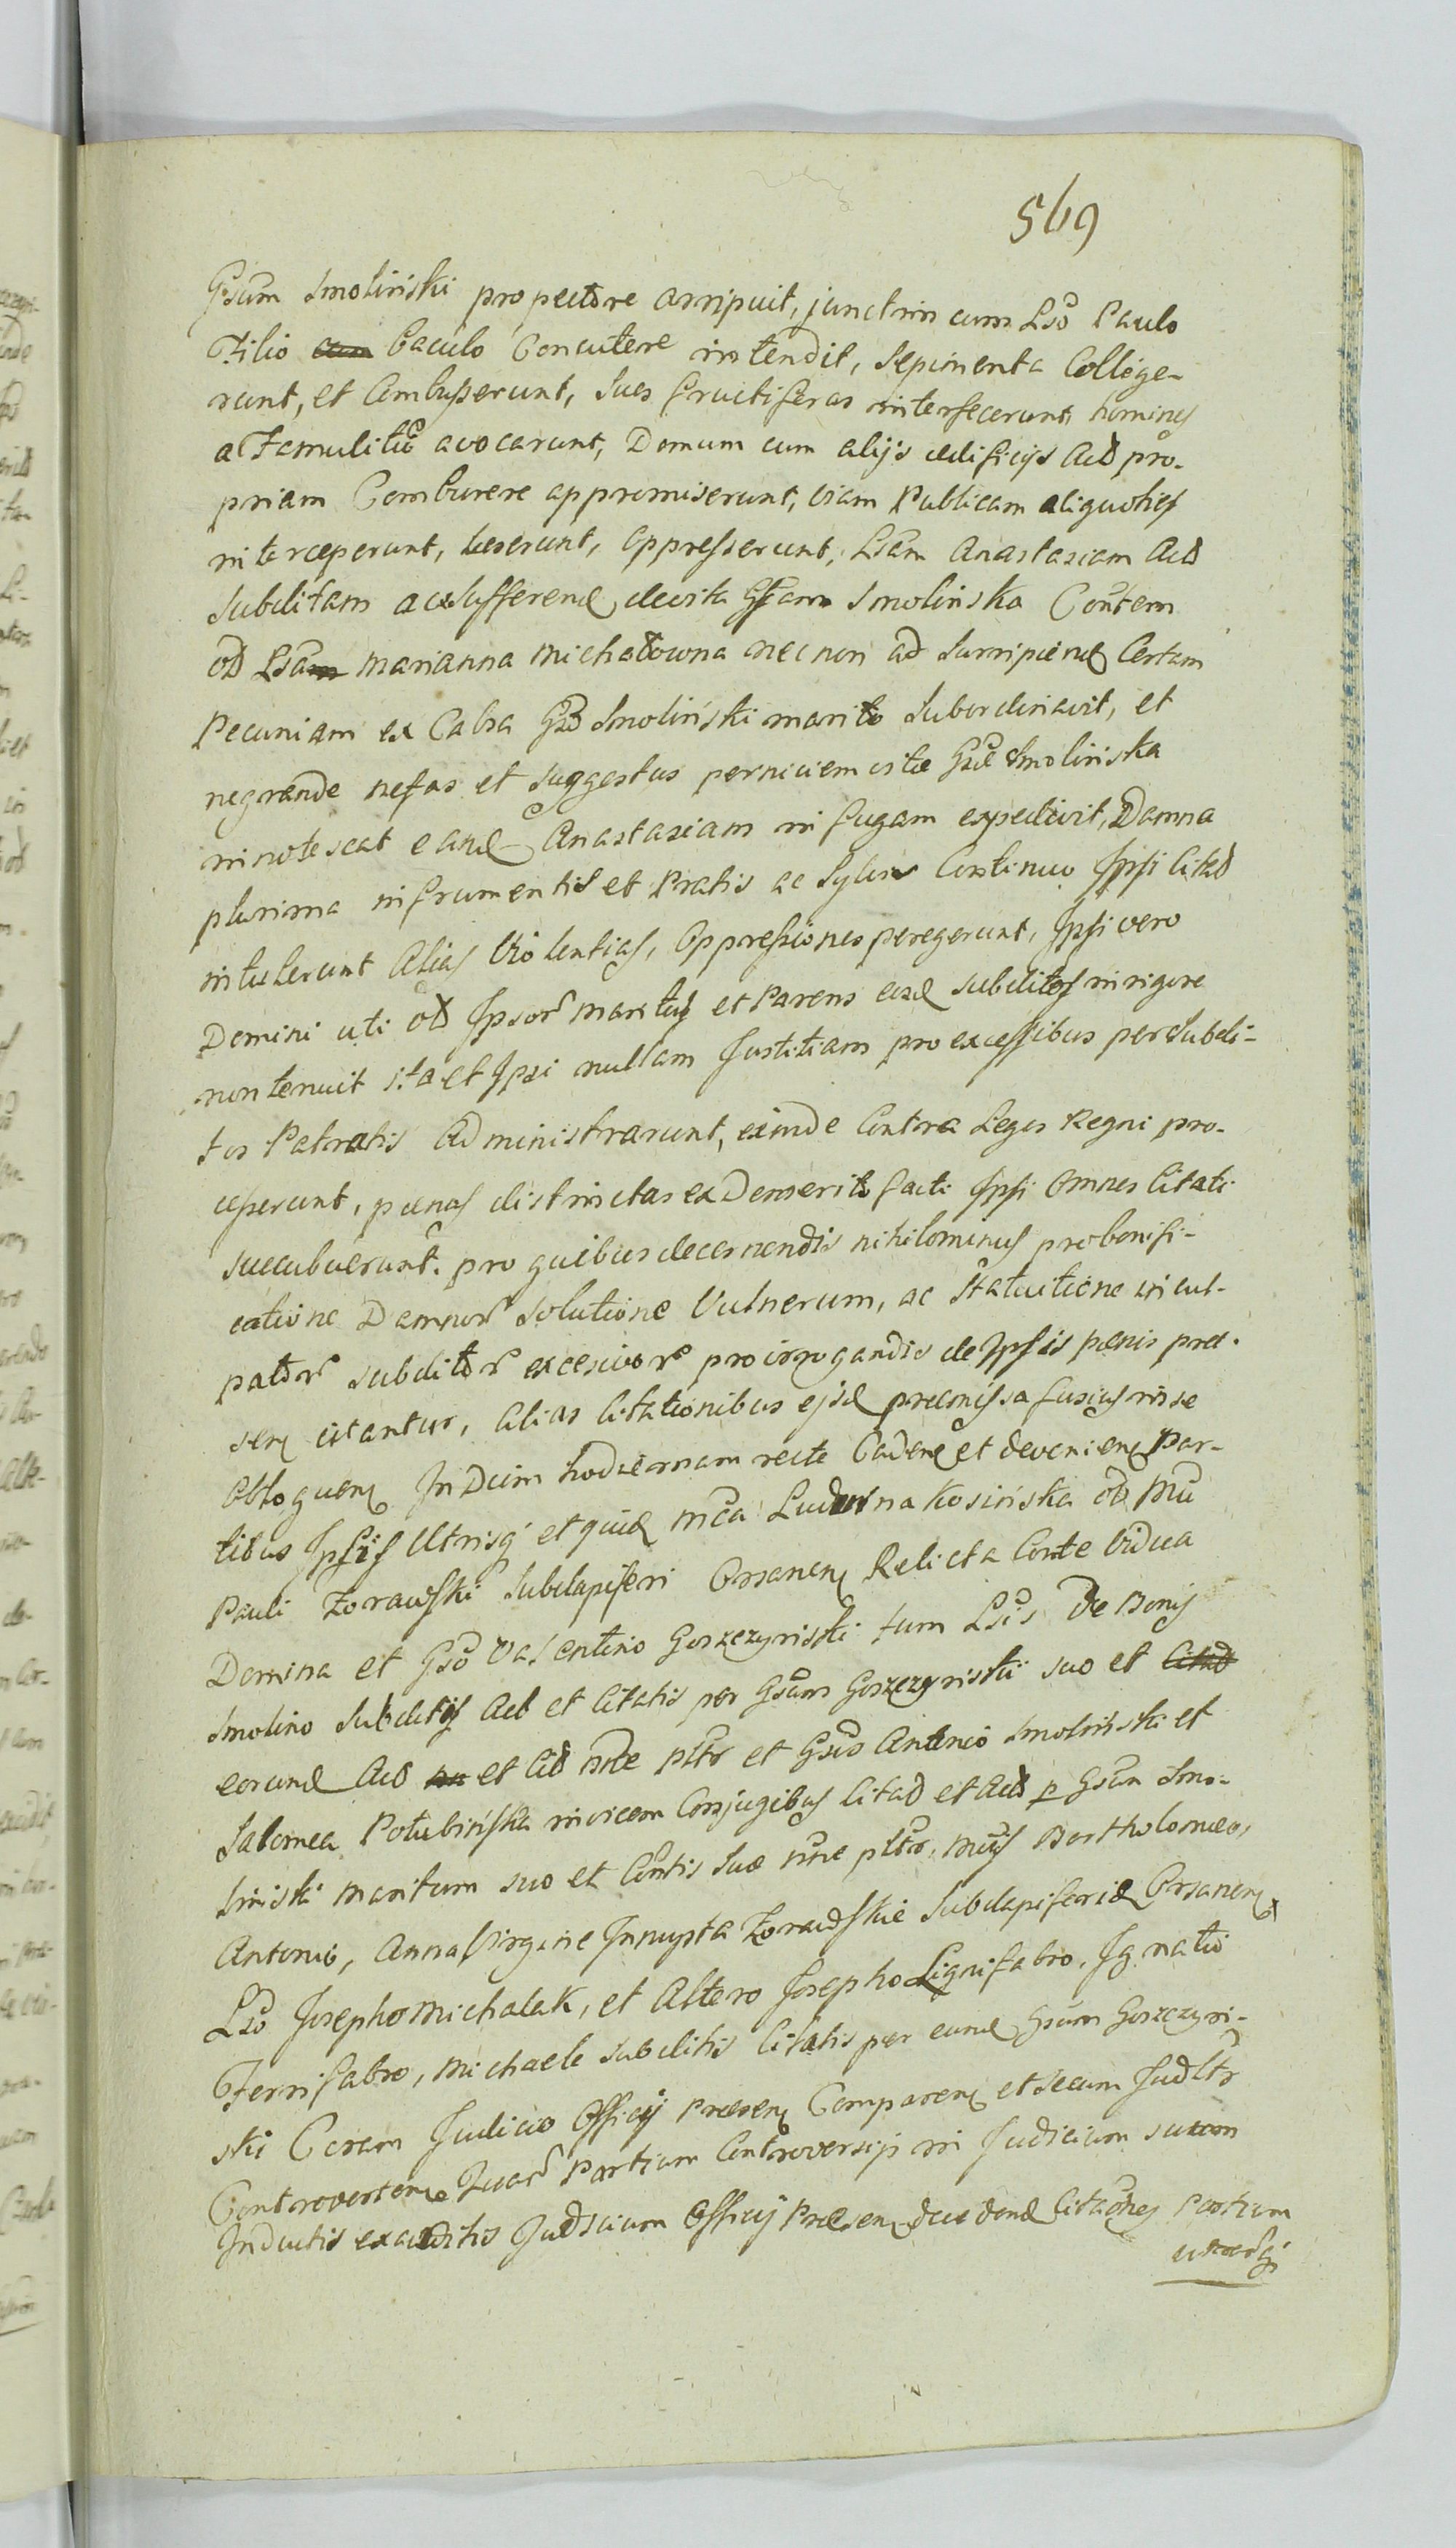 569
Gsum Smoliński pro pectore arripuit, junctim cum Lso Paulo
Filio cum baculo Concutere intendit, Sepimenta Collige-
runt, et Combusserunt, Sues fructiferas interfecerunt homines
a Famulitio avocarunt, Domum cum alijs aedificijs Acto pro-
priam Comburere appromiserunt, viam Publicam aliquoties
interceperunt, laeserunt, oppresserunt, Lsam Anastasiam Acto
Subditam ad Sufferend de vita Gsam Smolinska Contem
ob Lsam Marianna Michałowna nec non ad Surripiend Certam
Pecuniam ex Capsa Gsd Smoliński marito Subordinavit, et
ne grande nefas et suggestus perniciem vitae Gsae Smolińska
innotescat eand Anastasiam in fugam expedivit, Damna
plurima in frumentis et Pratis ac Sylvis Continuo Ipsi Citad
intulerunt Alias Violentias, Oppressiones peregerunt, Ipsi vero
Domini uti ob Ipsor maritus et Parens eosd subditos in rigore
non tenuit ita et Ipsi nullam Justitiam pro excessibus per Subdi-
tos Patratis Administrarunt, exinde Contra Leges Regni pro-
cesserunt, paenas districtas ex Demerito facti Ipsi Omnes Citati
succubuerunt. pro quibus decernendis nihilominus pro bonifi-
catione Damnor Solutione Vulnerum, ac Statuitione incul-
pator subditor excesivor pro irrogandis de Ipsis paenis prae-
sen citantur, Alias Citationibus ejsd praemissa fusius in se
obloquen In Diem hodiernam recte Caden et devenien Par-
tibus Ipsis Utrisq et quid mca Ludvina Kosińska ob Mci
Pauli Żorawski Subdapiferi Orsanen Relicta Conte Vidua
Domina et Gso Valentino Goszczyński tum Lsis De Bonis
Smolino Subditis Act et Citatis per Gsum Goszczyński suo et Citad
eorund Act et Cit nne pttr et Gsis Antonio Smoliński et
Salomea Potubińska invicem Conjugibus Citad et Act p Gsum Smo-
liński maritum suo et Contis Suae nne pttr. mcis Bartholomaeo,
Antonio, Anna Virgine Innupta Żorawskie Subdapiferid Orsanen
Lso Josepho Michalak, et Altero Josepho Lignifabro, Ignatio
Ferrifabro, Michaele subditis Citatis per eund Gsum Goszczyń-
ski Coram Judicio Officij Praesen Comparen et secum Judltr
Controverten Quar Partium Controversijs in Judicium suum
Inductis exauditis Judicium Officij Praesen Citaones Partium
utrasq